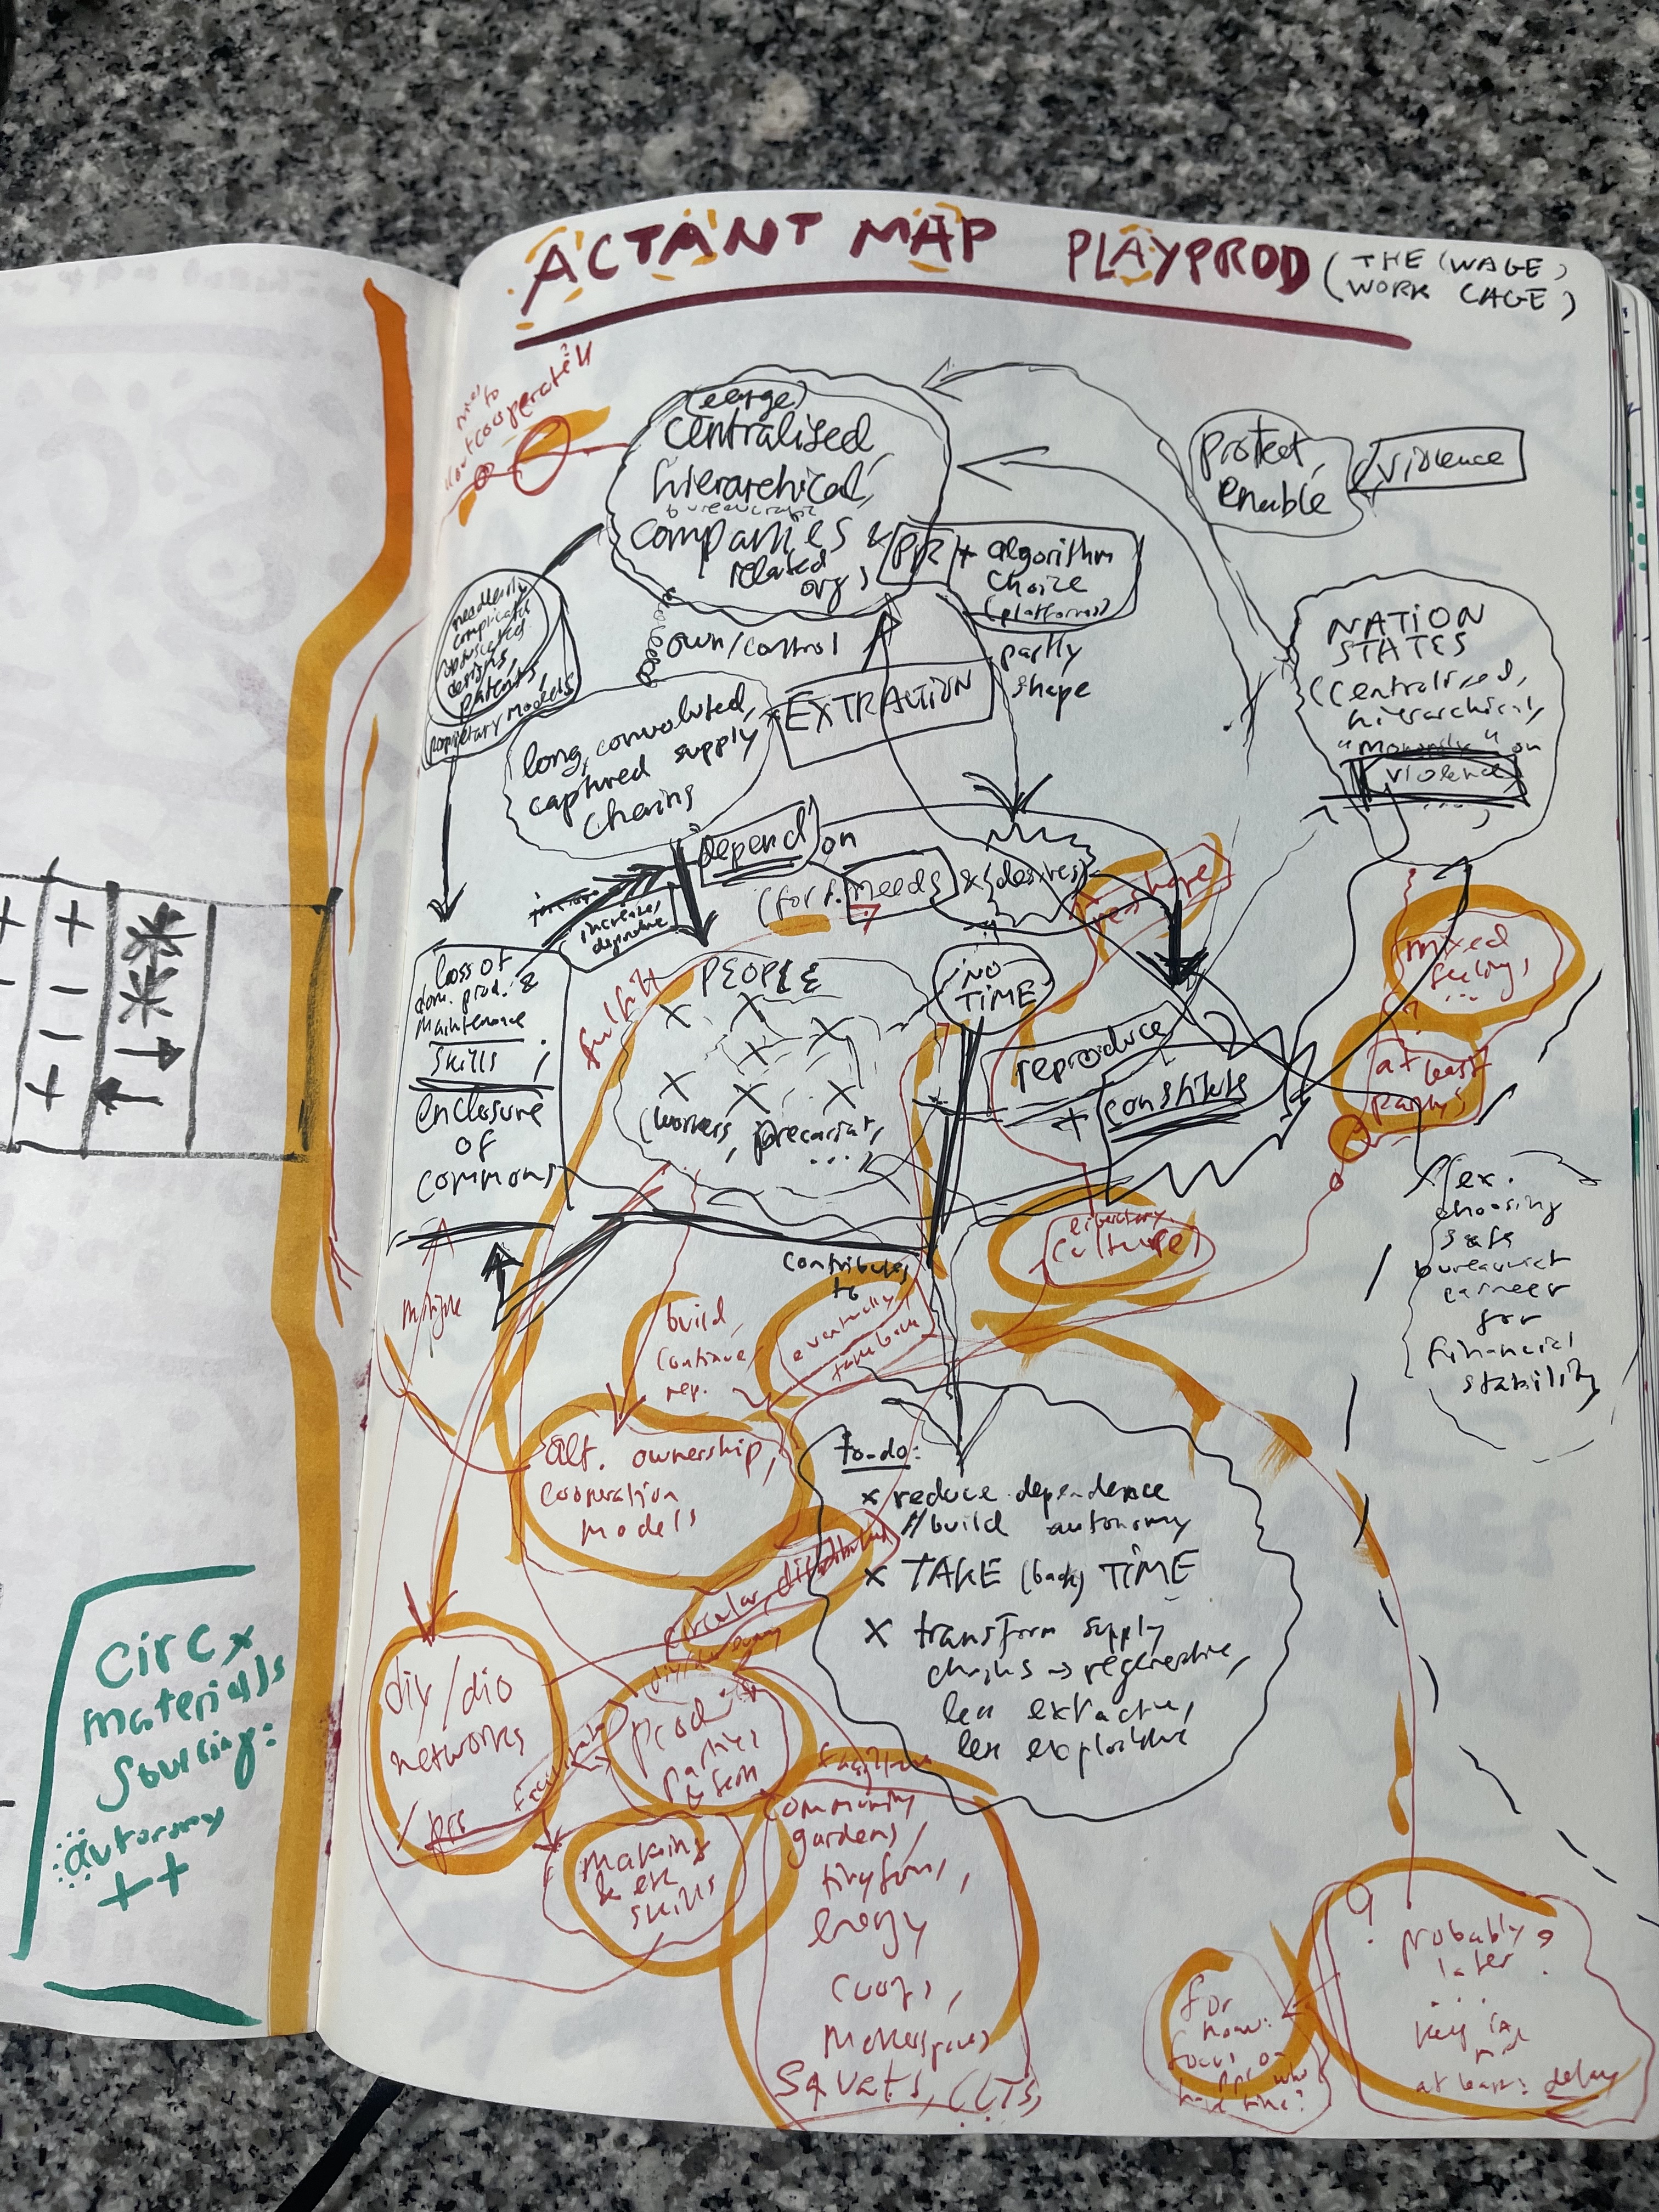 ACTANT MAP PLAYPROD (THE (WAGE)
WORK CAGE)
outcooperate
(large)
centralised
hierarchical,
companies &
related
orgs
PR + algorithm
choice
(platforms)
protect,
enable
violence
needlessly
designs,
patents,
proprietary models
own/control
EXTRACTION
partly
shape
long, convoluted,
captured supply
NATION
STATES
(centralised,
hierarchical,
on
violence
depend on
(for f. needs & desires)
increases
reshape
mixed
feelings
...
at least
loss of
dom. prod. &
maintenance
skills;
enclosure
of
commons
fulfill
PEOPLE
(workers, precariat,
...
NO
TIME
reproduce
+ constitute
ex.
choosing
safe
career
for
financial
stability
contributes
to
eventually
take back
liberatory
culture
build,
continue,
rep.
alt. ownership,
cooperation
models
to-do:
x reduce dependence
// build autonomy
x TAKE (back) TIME
x transform supply
chains → regenerative,
less extractive,
less exploitative
circular, distributed
diy/dio
networks
prod.
parties
making
skills
facilitate
community
gardens,
energy
coops,
makerspaces
squats, CLTs,
...
? probably
later
...
at least: delay
for
now:
focus on
ppl who
have time?
circ x
materials
sourcing:
autonomy
++
+ +
- -
- -
+